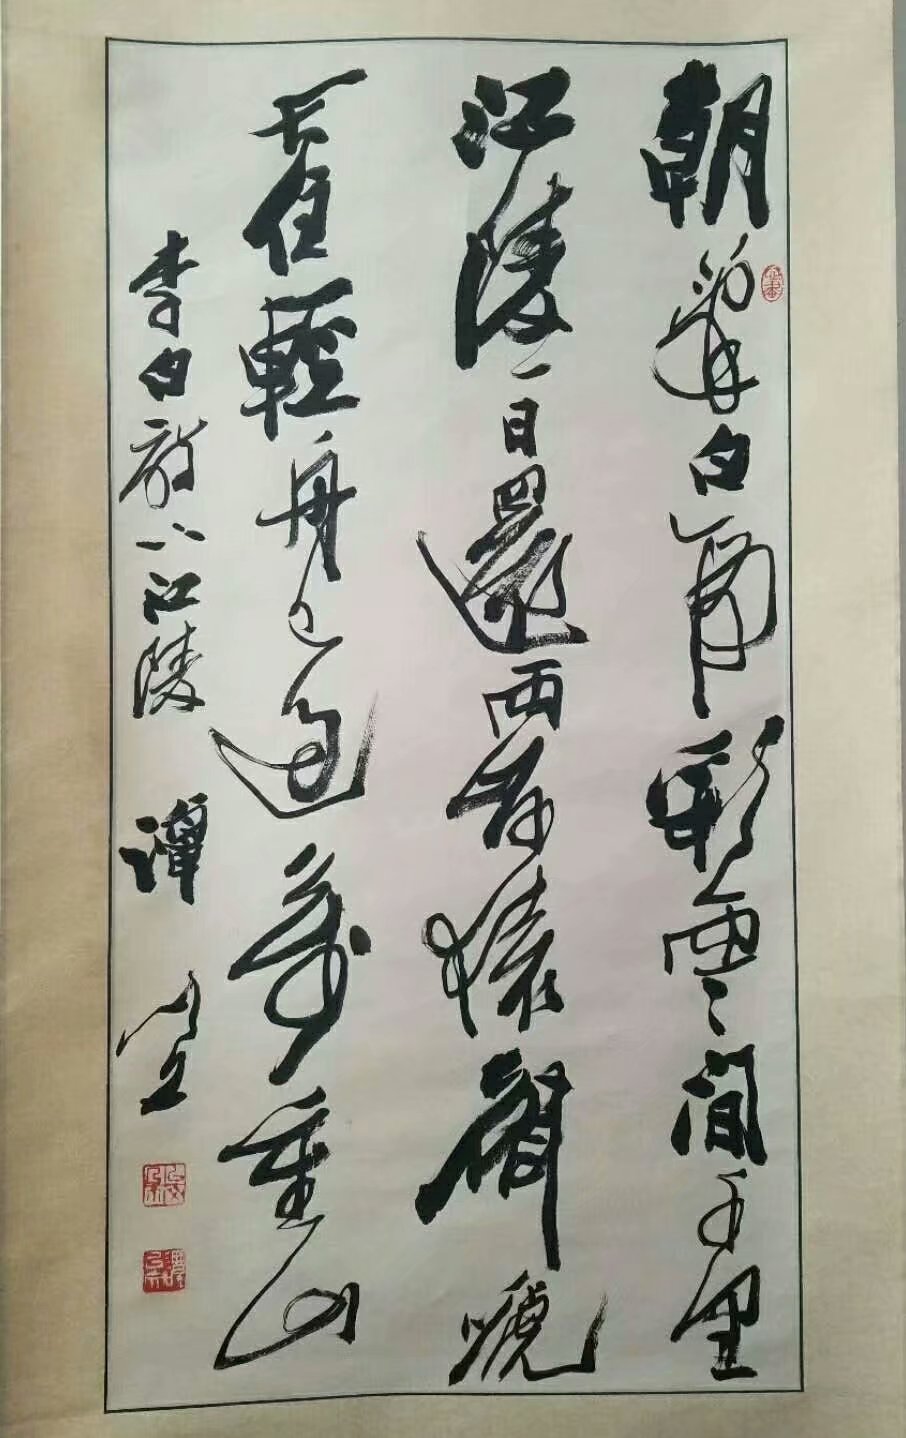 朝辭白帝彩雲間千里
江陵一日還两岸猿聲嗁
不住輕舟已過萬重山
李白下江陵 譚